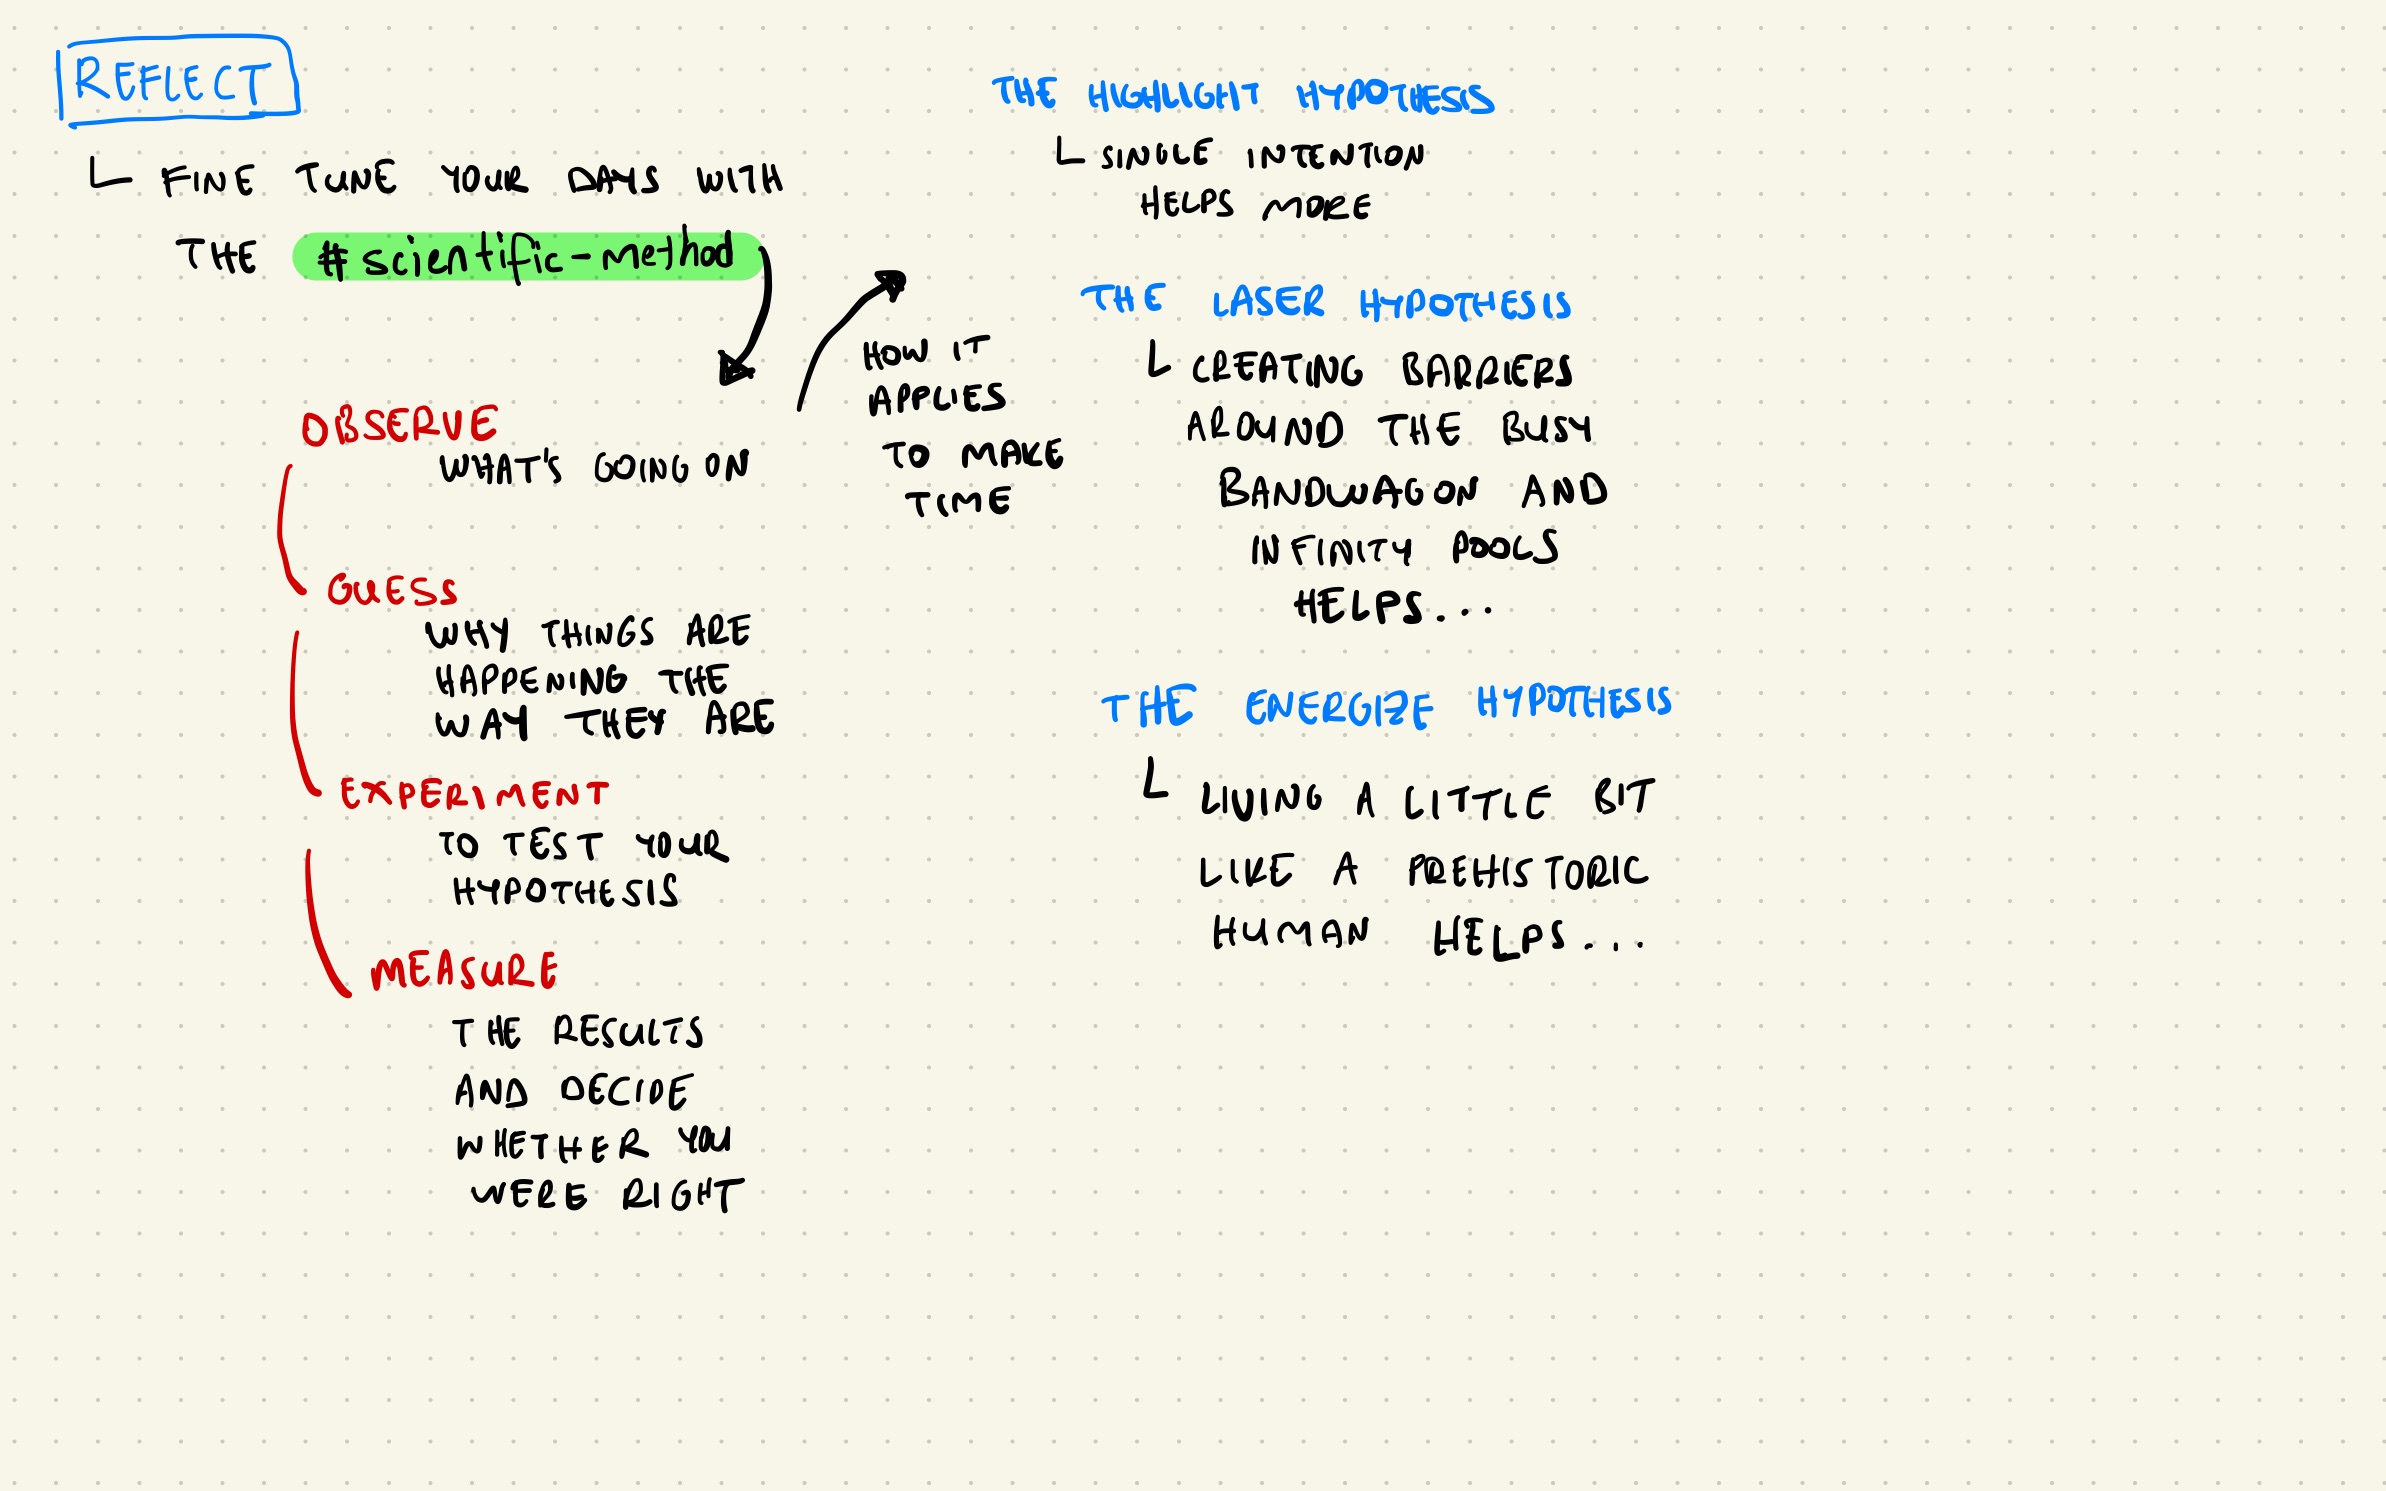 REFLECT
FINE TUNE YOUR DAYS WITH
THE #scientific-method
OBSERVE
WHAT'S GOING ON
GUESS
WHY THINGS ARE
HAPPENING THE
WAY THEY ARE
EXPERIMENT
TO TEST YOUR
HYPOTHESIS
MEASURE
THE RESULTS
AND DECIDE
WHETHER YOU
WERE RIGHT
HOW IT
APPLIES
TO MAKE
TIME
THE HIGHLIGHT HYPOTHESIS
SINGLE INTENTION
HELPS MORE
THE LASER HYPOTHESIS
CREATING BARRIERS
AROUND THE BUSY
BANDWAGON AND
INFINITY POOLS
HELPS...
THE ENERGIZE HYPOTHESIS
LIVING A LITTLE BIT
LIKE A PREHISTORIC
HUMAN HELPS...